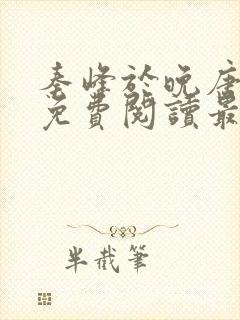 秦峰於晚唐
免費閱讀最
半截筆